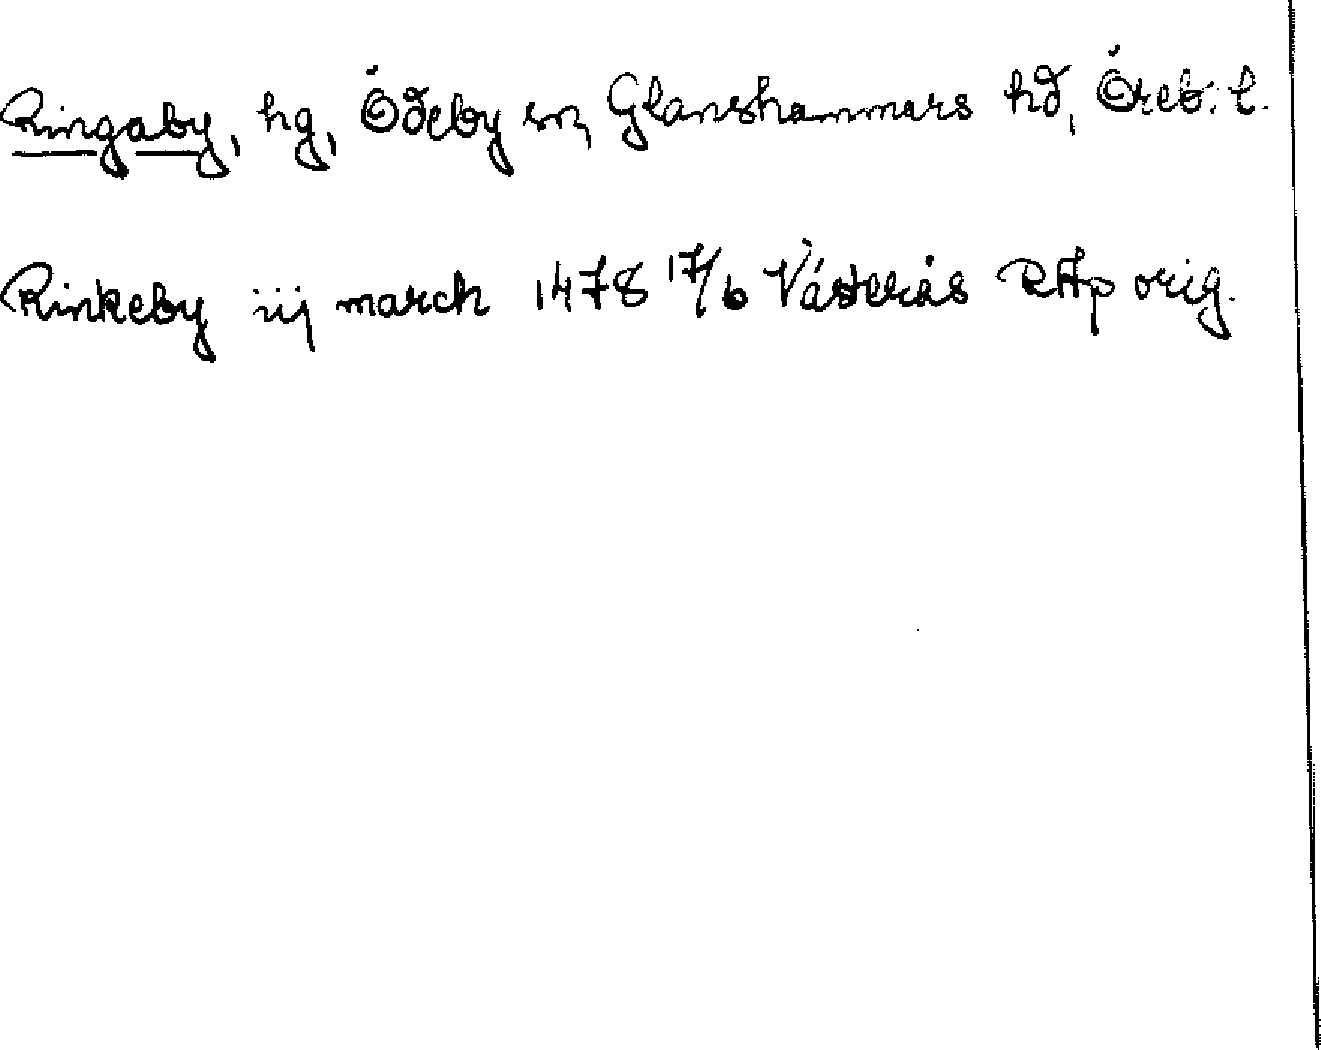 Ringaby, hg, Ödeby sn, Glanshammars hd, Öreb. l.
Rinkeby iij march 1478 17/6 Västerås RAp orig.